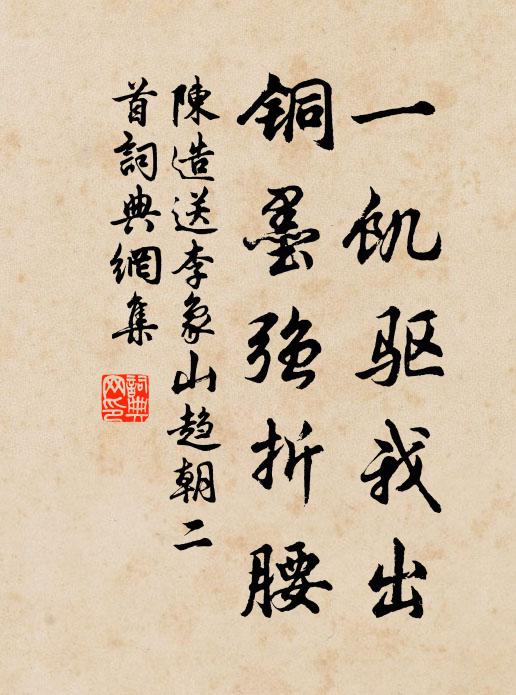 一饥驱我出
铜墨强折腰
陳造送李象山趋朝二
首詞典網集
詞典
网印